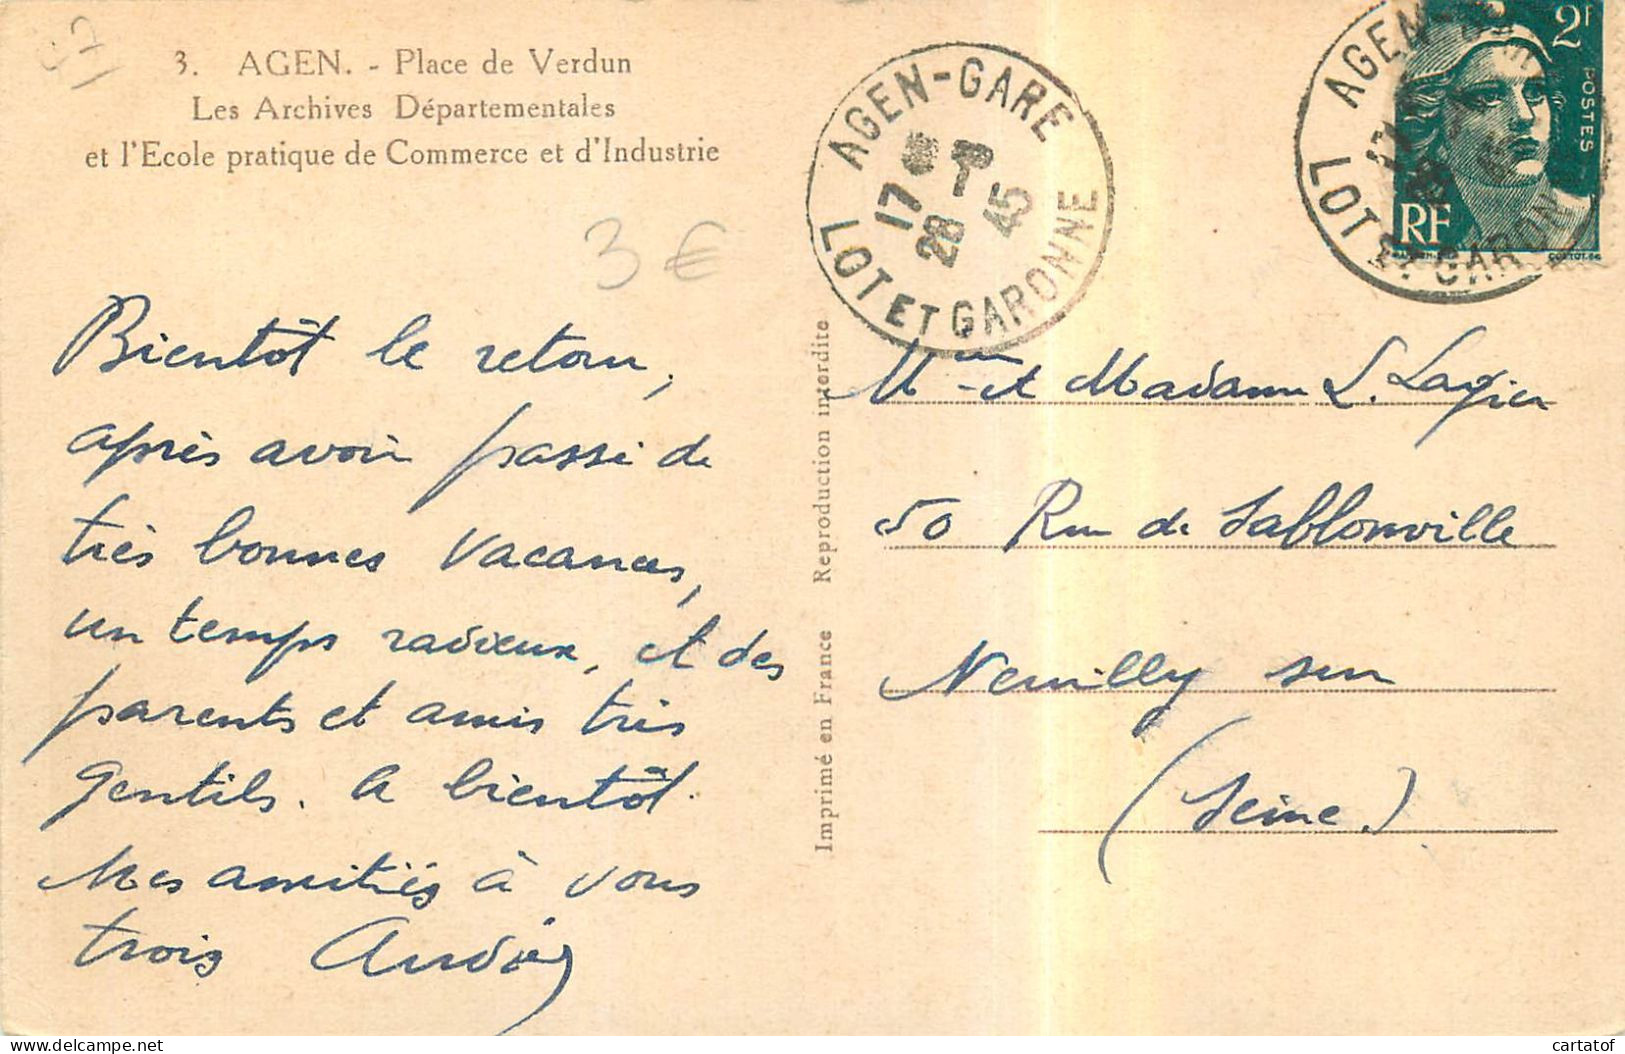 3. AGEN. - Place de Verdun
Les Archives Départementales
et l'Ecole pratique de Commerce et d'Industrie
3 €
47
AGEN-GARE
17
28 45
LOT ET GARONNE
AGEN-GARE
LOT ET GARONNE
2F
POSTES
RF
Bientôt le retour,
après avoir passé de
très bonnes vacances,
un temps radieux, et des
parents et amis très
gentils. A bientôt.
Mes amitiés à vous
trois
Imprimé en France Reproduction interdite
et Madame L.
50 Rue de Sablonville
Neuilly sur
(Seine.)
cartatof